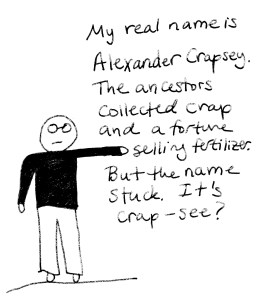 My real name is
Alexander Crapsey.
The ancestors
collected crap
and a fortune
selling fertilizer.
But the name
stuck. It's
crap-see?